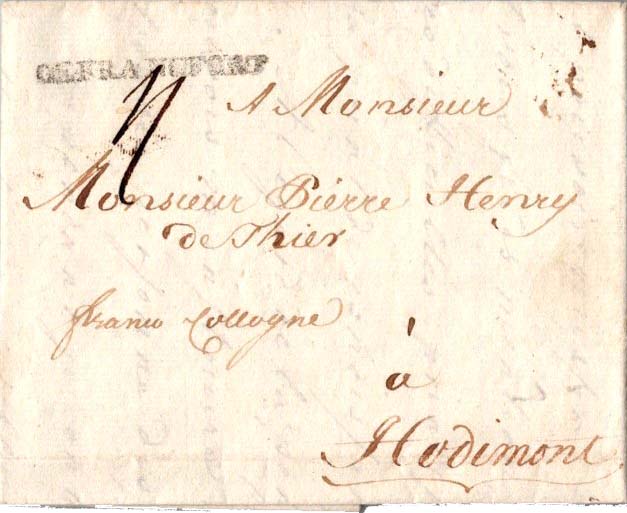 DE FRANCFORT
A Monsieur
Monsieur Pierre Henry
de Thier
franco Cologne
à
Hodimont